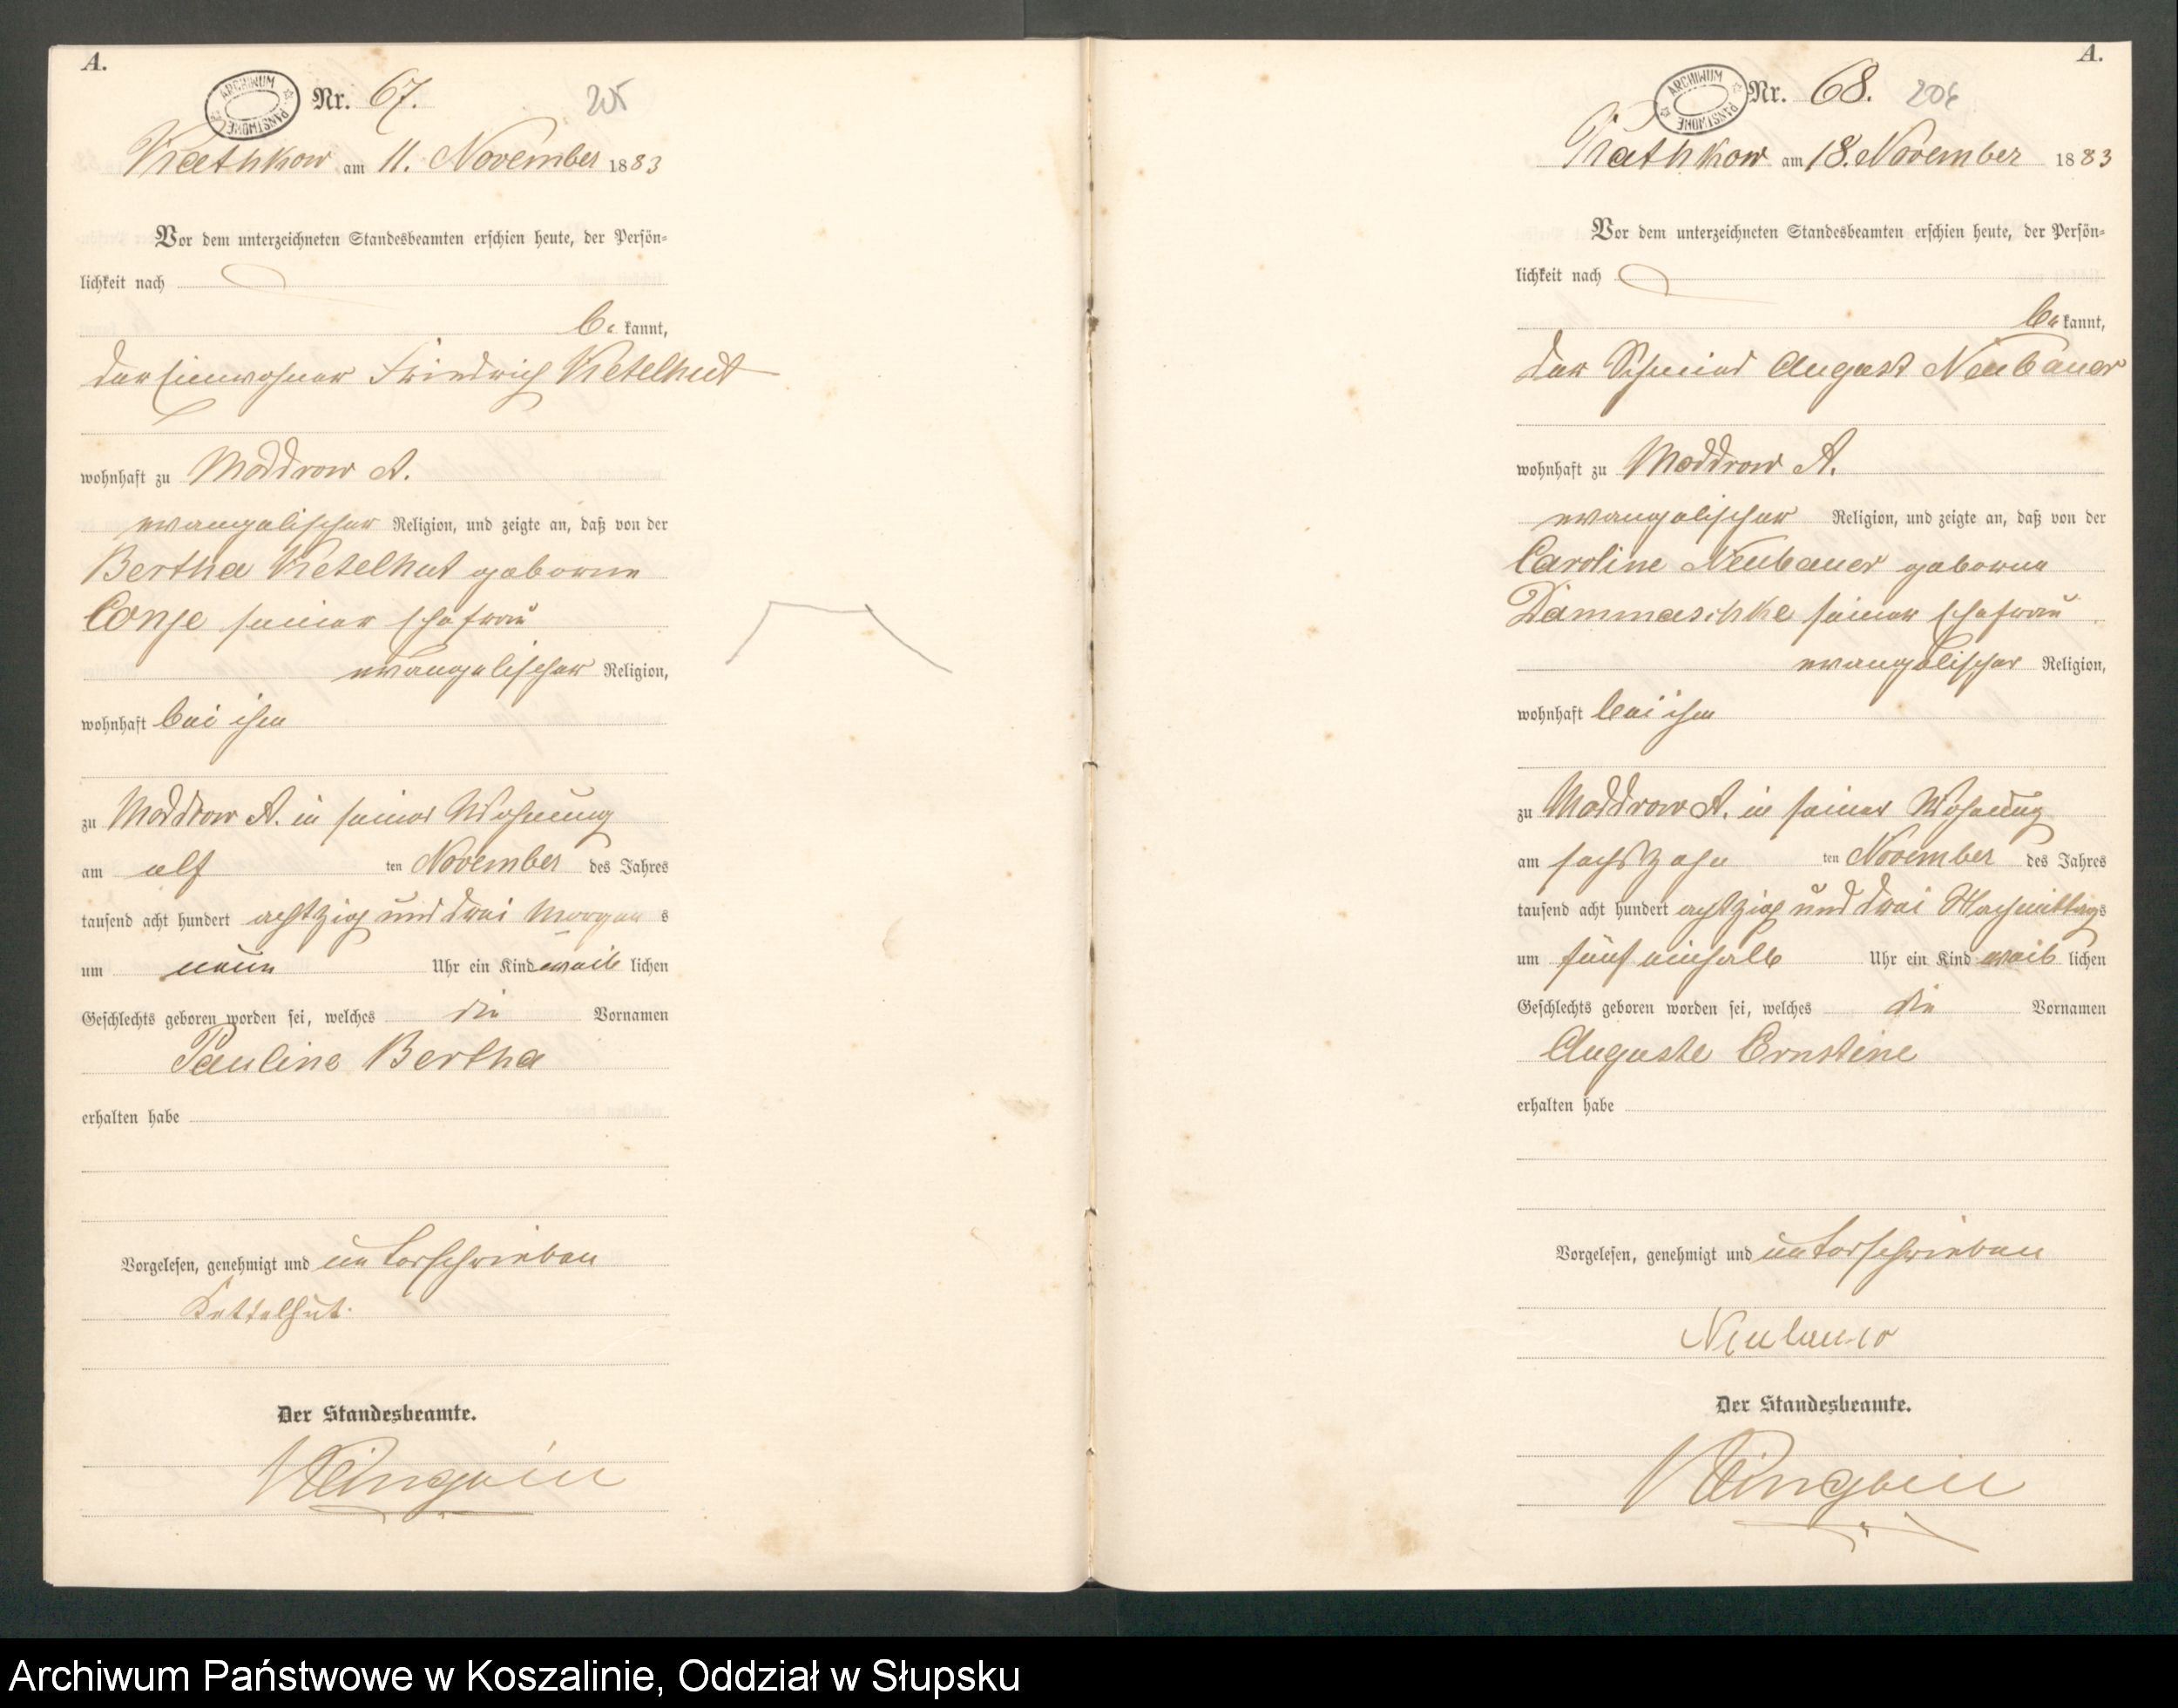 A.
ARCHIWUM PAŃSTWOWE
Nr. 67.
205
Rathkow am 11. November 1883
Vor dem unterzeichneten Standesbeamten erschien heute, der Persön-
lichkeit nach
be kannt,
der Einwohner Friedrich Ketelhut
wohnhaft zu Moddrow A.
evangelischer Religion, und zeigte an, daß von der
Bertha Ketelhut geborene
Conje seiner Ehefrau
evangelischer Religion,
wohnhaft bei ihm
zu Moddrow A. in seiner Wohnung
am elf ten November des Jahres
tausend acht hundert achtzig und drei Morgen s
um neun Uhr ein Kind weib lichen
Geschlechts geboren worden sei, welches die Vornamen
Pauline Bertha
erhalten habe
Vorgelesen, genehmigt und unterschrieben
Kettelhut.
Der Standesbeamte.
A.
ARCHIWUM PAŃSTWOWE
Nr. 68.
206
Rathkow am 18. November 1883
Vor dem unterzeichneten Standesbeamten erschien heute, der Persön-
lichkeit nach
be kannt,
der Schmied August Neubauer
wohnhaft zu Moddrow A.
evangelischer Religion, und zeigte an, daß von der
Caroline Neubauer geborene
Dammaschke seiner Ehefrau
evangelischer Religion,
wohnhaft bei ihm
zu Moddrow A. in seiner Wohnung
am sechszehn ten November des Jahres
tausend acht hundert achtzig und drei Nachmittags
um fünf einhalb Uhr ein Kind weib lichen
Geschlechts geboren worden sei, welches die Vornamen
Auguste Ernstine
erhalten habe
Vorgelesen, genehmigt und unterschrieben
Neubauer
Der Standesbeamte.
Archiwum Państwowe w Koszalinie, Oddział w Słupsku